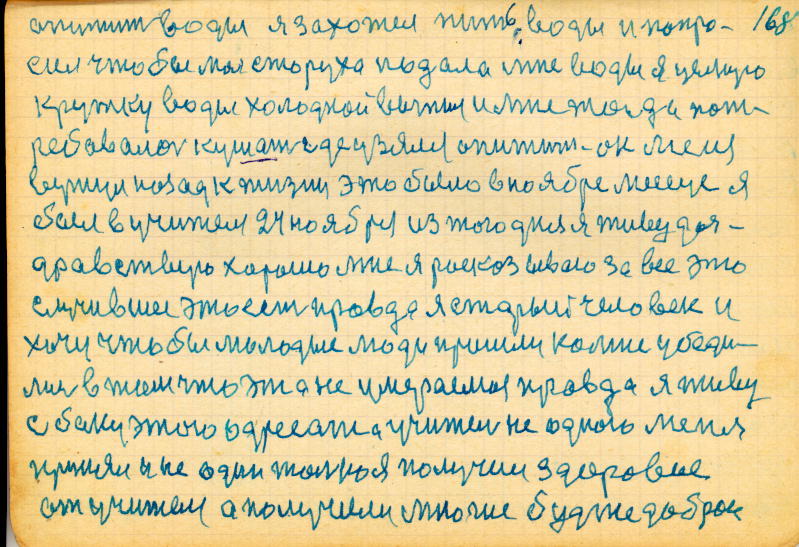 опитит воды я захотел пить воды и попро- 168
сил чтобы моя старуха подала мне воды я целую
кружку воды холодной выпил и мне тогда пот-
ребовалог кушат где узялся опитит-ок меня
вернул назад к жизни это было в ноябре месеце я
был в учителя 24 ноября из того дня я живу доз-
дравствую хорошо мне я росказываю за все это
случившее это ест правда я старый человек и
хочу чтобы молодые люди пришли ко мне убеди-
лис в том что эта не умераемая правда я живу
с баку этого одресата учител не одного меня
принял и не один только я получил здоровие
от учителя а получили многие будже доброе